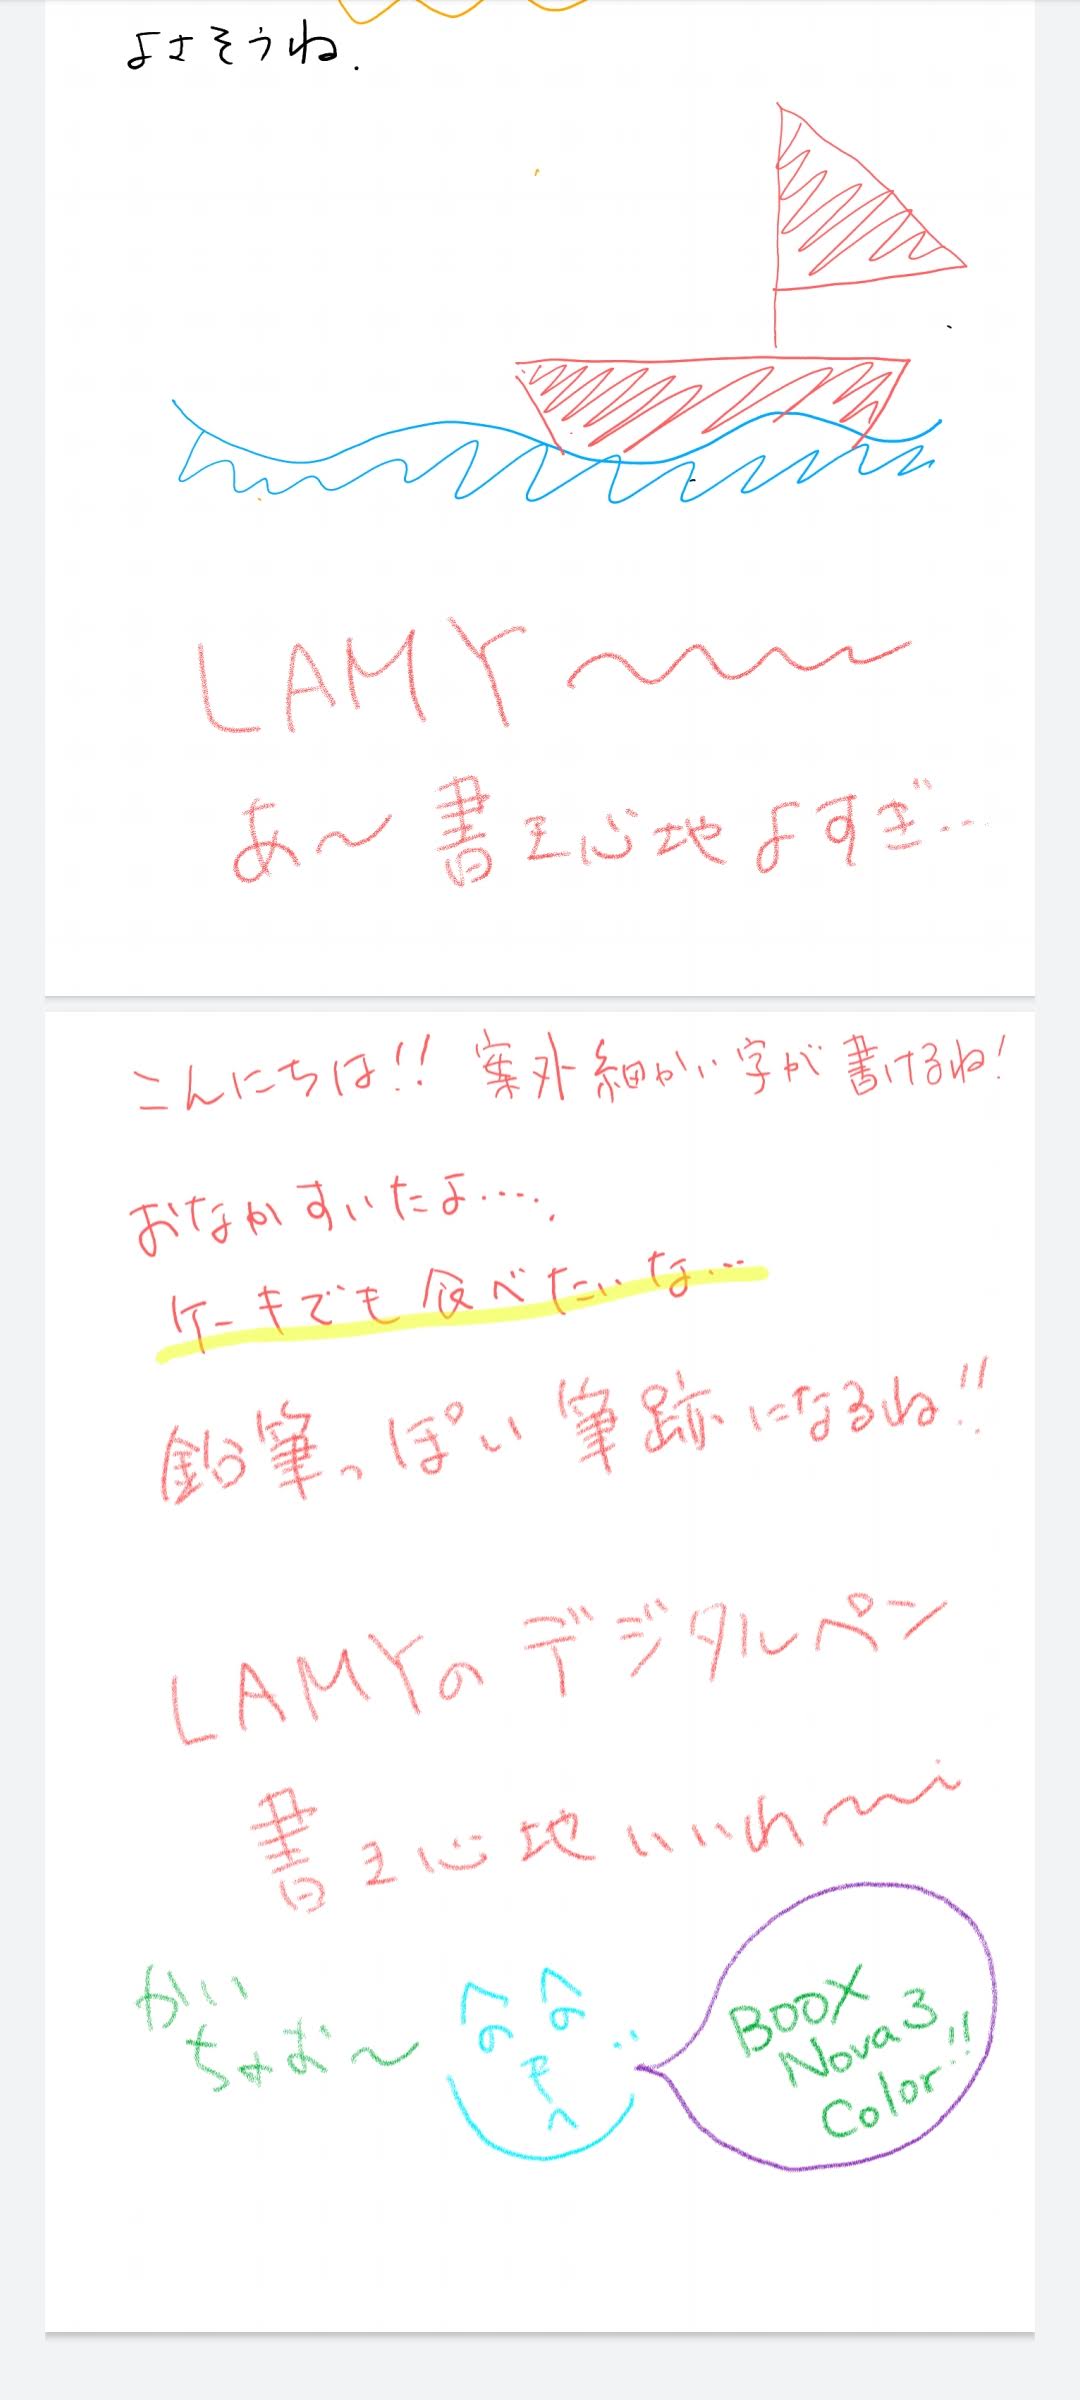 よさそうね.
LAMY〜〜〜
あ〜書き心地よすぎ…
こんにちは!! 案外細かい字が書けるね!
おなかすいたよ…..
ケーキでも食べたいな…
鉛筆っぽい筆跡になるね!!
LAMYのデジタルペン
書き心地いいわ〜〜
かい
ちょお〜
へへ
のの
も
へ
じ
BOOX
Nova3
Color!!